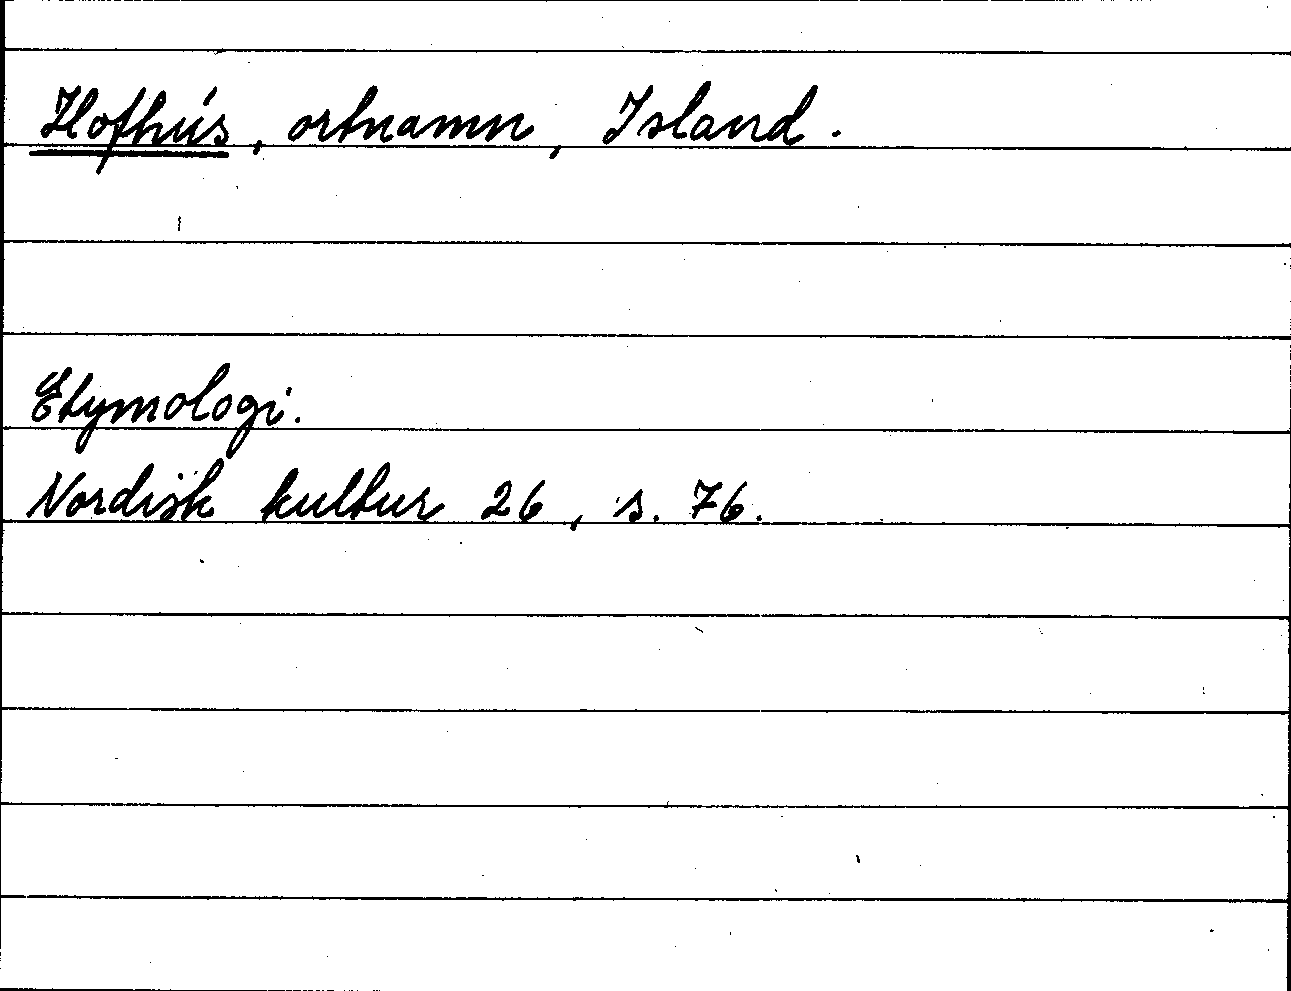 Hofhús, ortnamn, Island.
Etymologi.
Nordisk kultur 26, s. 76.